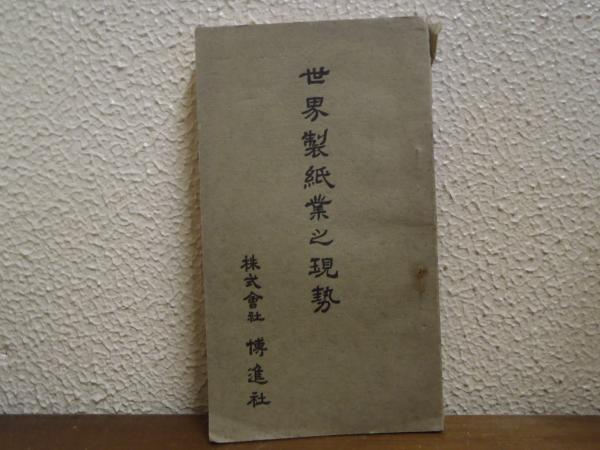 世界製紙業之現勢
株式會社 博進社